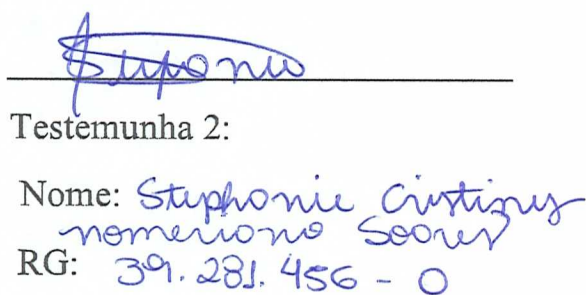 Stephonie
Testemunha 2:
Nome: Stephonie Cristiny
nomeriono Soores
RG: 39.281.456-0